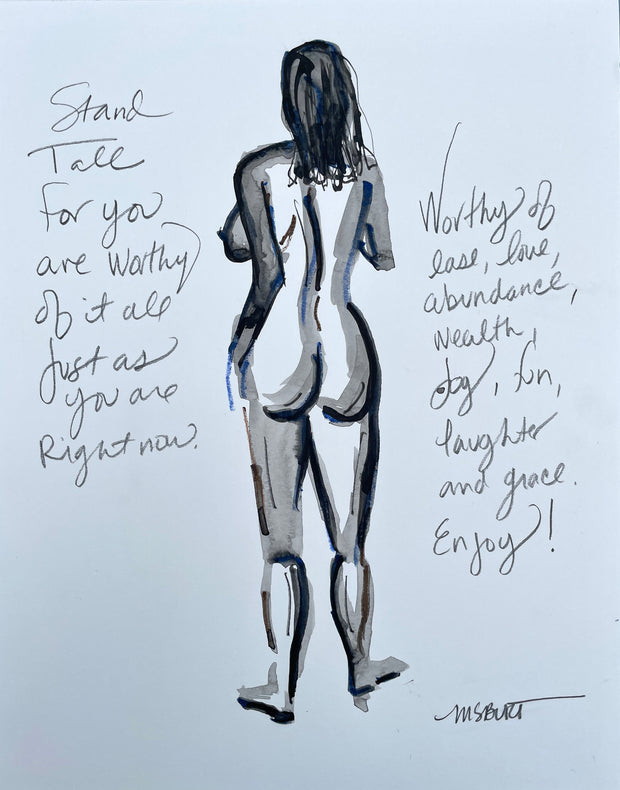 Stand
Tall
For you
are worthy
of it all
Just as
you are
Right now.
Worthy of
ease, love,
abundance,
wealth,
Joy, fun,
laughter
and grace.
Enjoy!
MSBURT